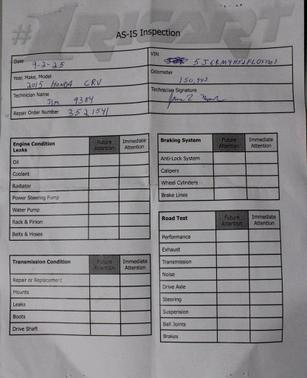 AS-IS Inspection
Date 9-2-25
VIN
Year, Make, Model 2015 Honda CRV
Odometer 150,942
Technician Name Jim 9384
Technician Signature
Repair Order Number 352154/
Engine Condition Future Attention Immediate Attention
Leaks
Oil
Coolant
Radiator
Power Steering Pump
Water Pump
Rack & Pinion
Belts & Hoses
Transmission Condition Future Attention Immediate Attention
Repair or Replacement
Mounts
Leaks
Boots
Drive Shaft
Braking System Future Attention Immediate Attention
Anti-Lock System
Calipers
Wheel Cylinders
Brake Lines
Road Test Future Attention Immediate Attention
Performance
Exhaust
Transmission
Noise
Drive Axle
Steering
Suspension
Ball Joints
Brakes